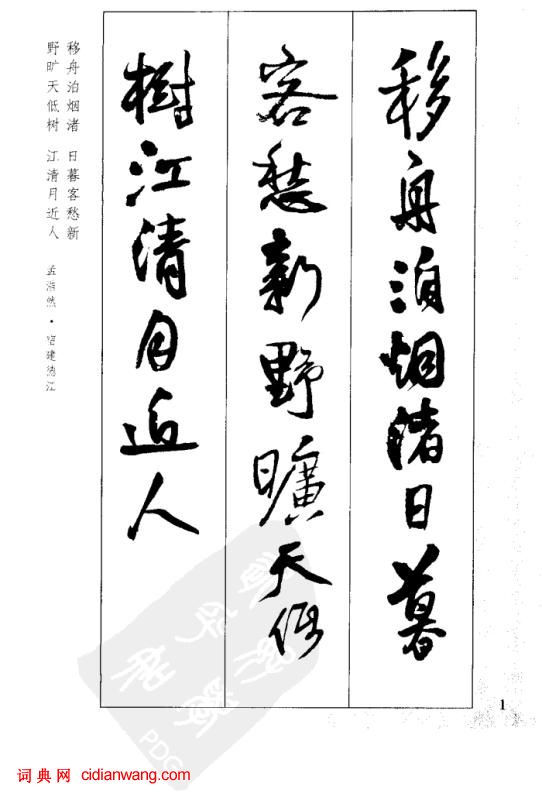 移舟泊烟渚日暮
客愁新野曠天低
樹江清月近人
移舟泊烟渚 日暮客愁新
野旷天低树 江清月近人
孟浩然·宿建德江
1
PDG
词典网 cidianwang.com